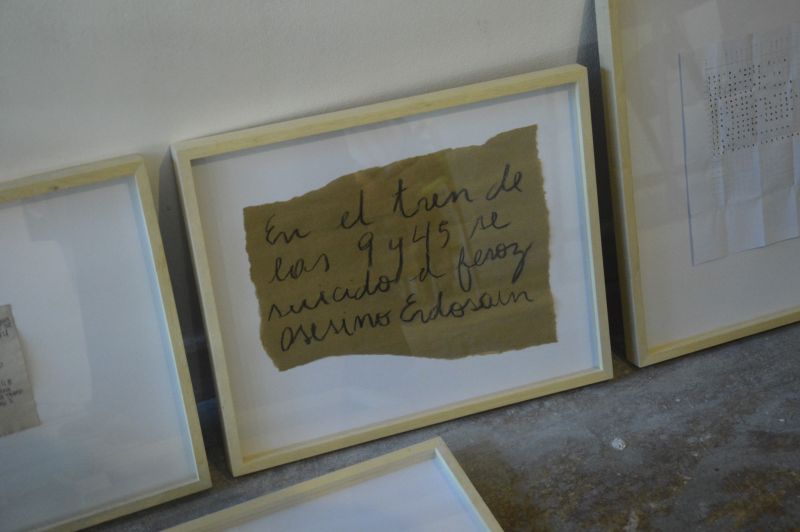 En el tren de
las 9 y 45 se
suicido el feroz
asesino Erdosain